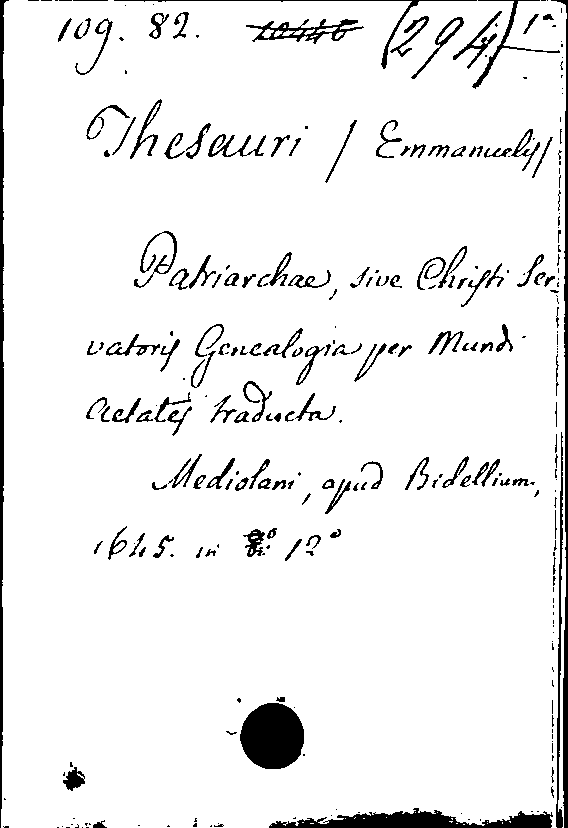 109. 82. (294) 1ª
Thesauri / Emmanuelis /
Patriarchae, sive Christi Ser-
vatoris Genealogia per Mundi
Aetates traducta.
Mediolani, apud Bidellium,
1645. in 12°